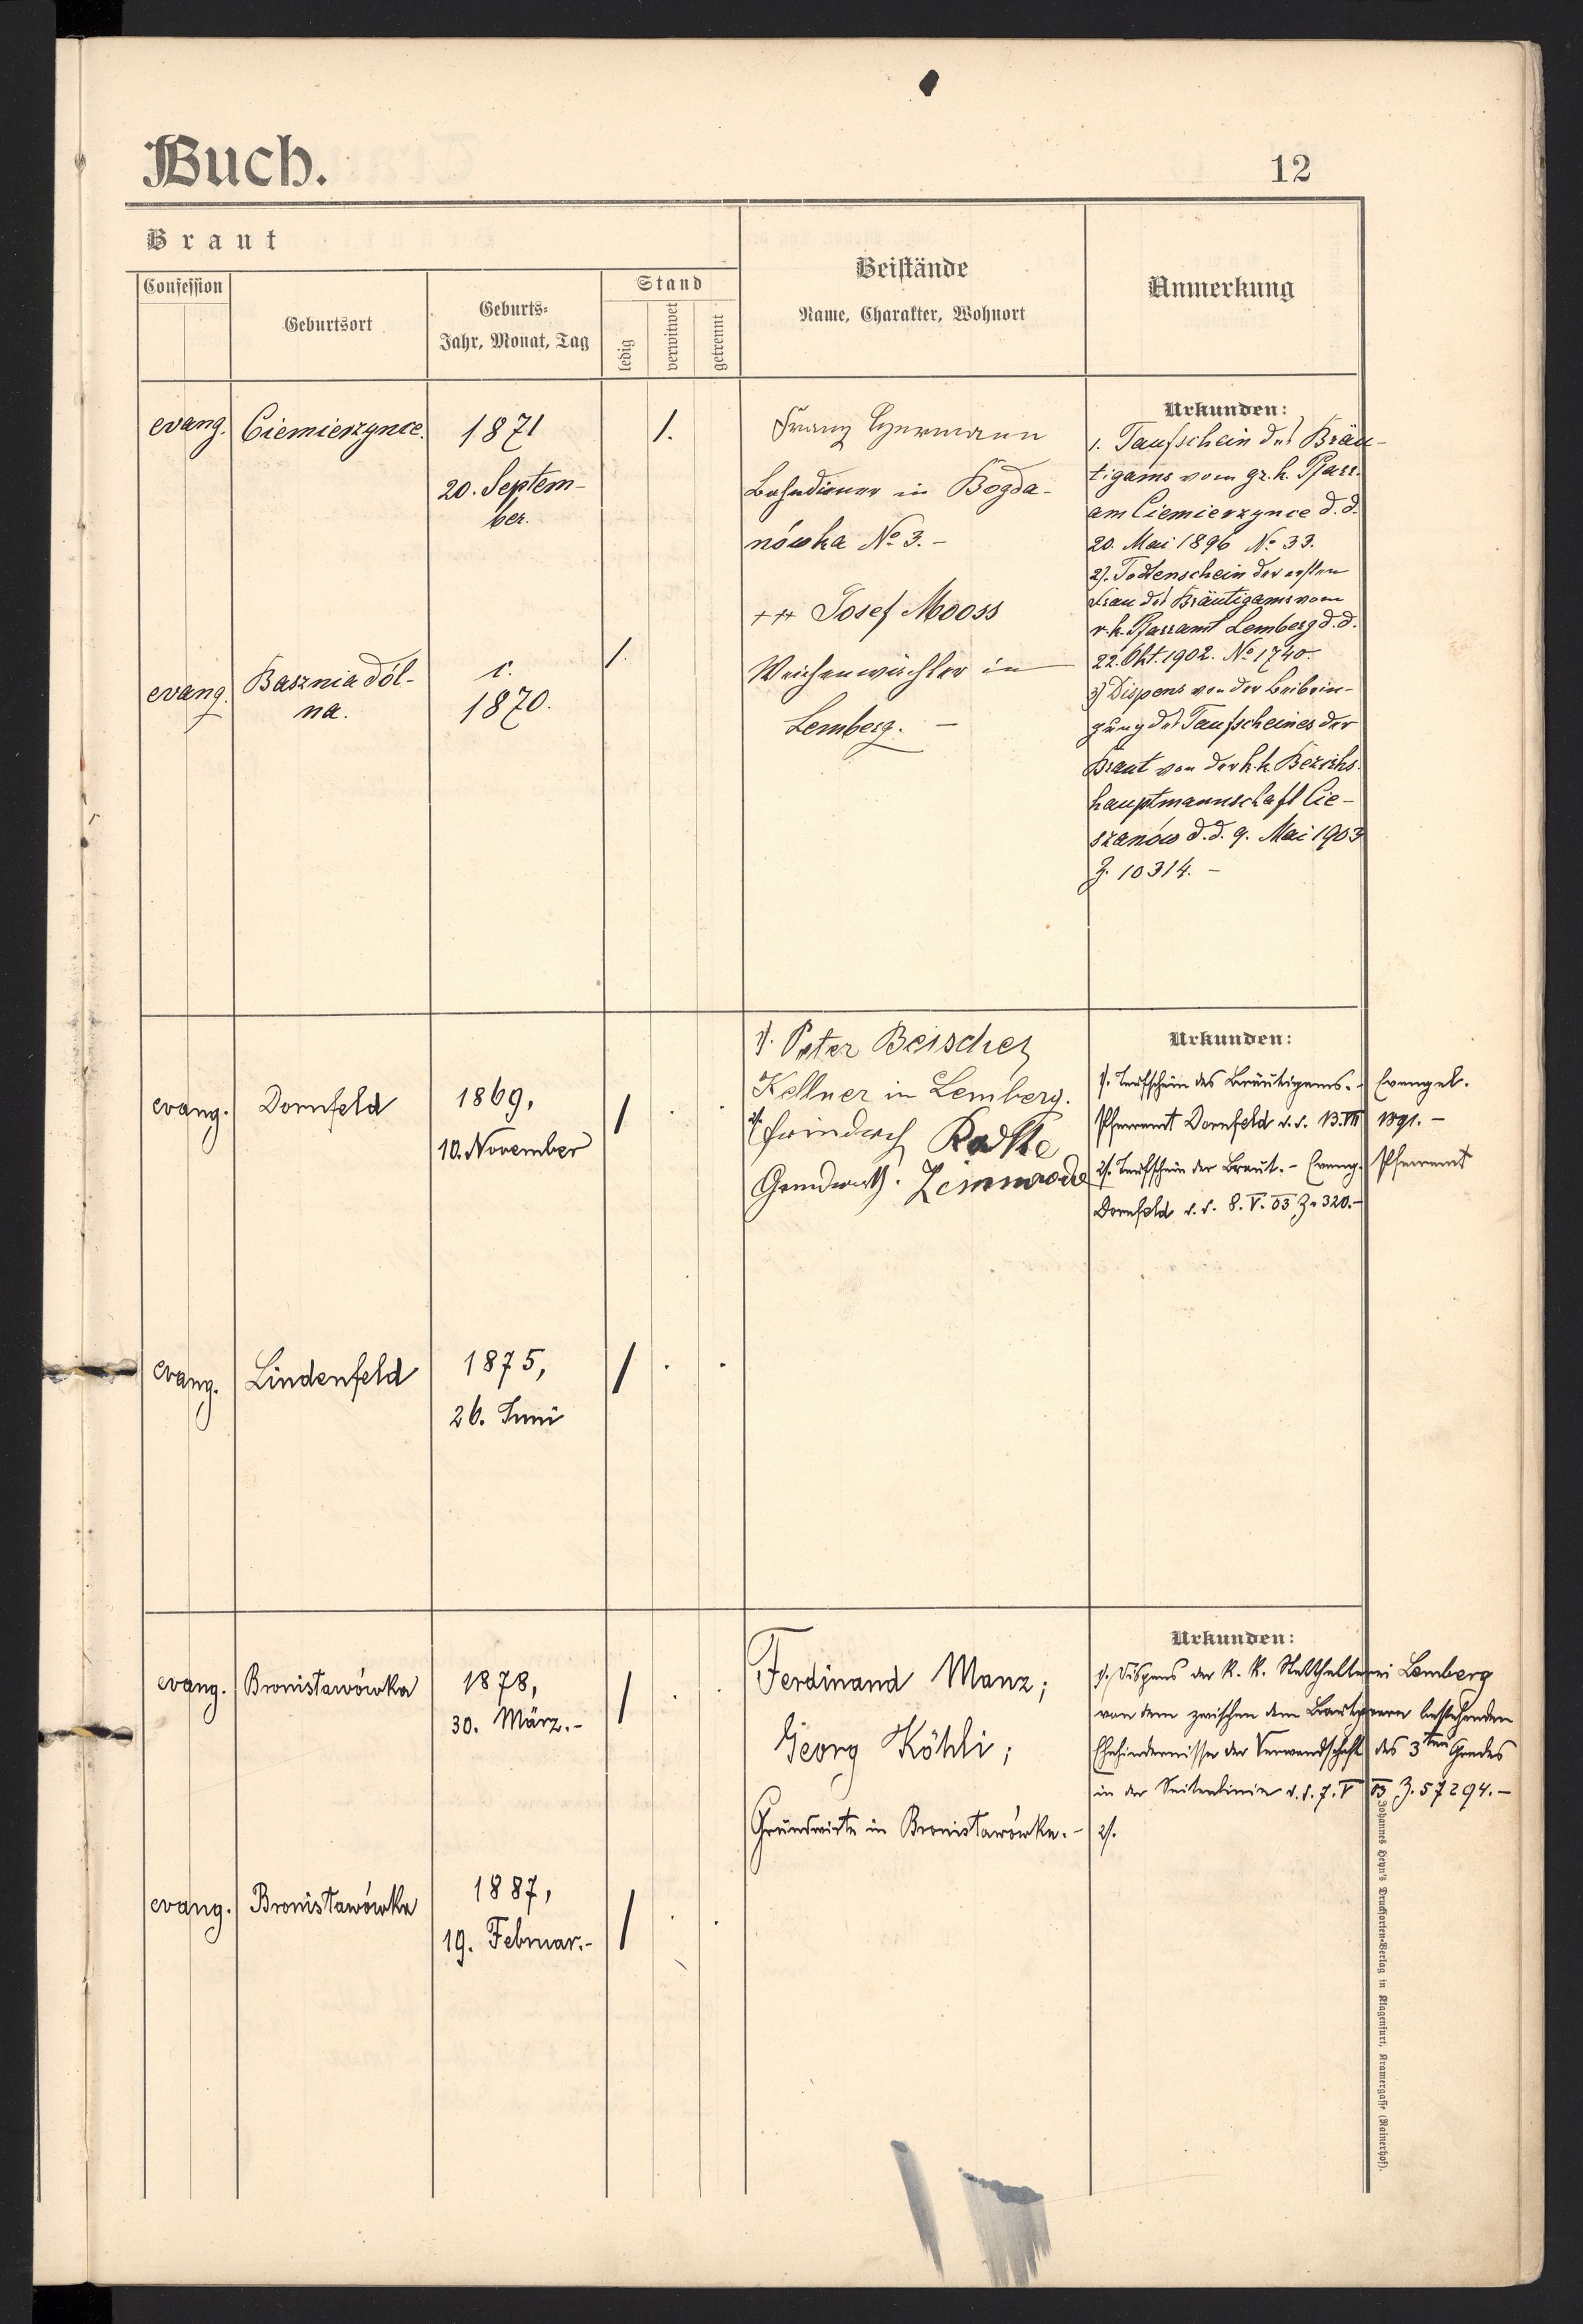 Buch.
12
Braut
Beistände
Name, Charakter, Wohnort
Anmerkung
Confession
Geburtsort
Geburts-
Jahr, Monat, Tag
Stand
ledig
verwitwet
getrennt
evang.
Ciemierzynce.
1871
20. Septem-
ber.
1.
Franz
Bahndiener in Bogda-
nówka No 3. -
+++ Josef Mooss
Weichenwächter in
Lemberg. -
Urkunden:
1. Taufschein des Bräu-
tigams vom gr. k. Pfarr-
am Ciemierzynce d. d.
20. Mai 1896 No 33.
2). Todtenschein der ersten
Frau des Bräutigams vom
r. k. Pfarramt Lemberg d. d.
22. Okt. 1902. No 1740.
3) Dispens von der Beibrin-
gung des Taufscheines der
Braut von der k. k. Bezirks-
hauptmannschaft Cie-
szanów d. d. 9. Mai 1903
Z. 10314. -
evang.
Basznia dól-
na.
c.
1870.
1.
evang.
Dornfeld
1869,
10. November
/
1/. Peter Beischer
Kellner in Lemberg.
2/. Radke
Grundwirth.
Urkunden:
1/. Taufschein des Bräutigams. - Evangel.
Pfarramt Dornfeld d. d. 13. VII 1891. -
2/. Taufschein der Braut. - Evang. Pfarramt
Dornfeld d. d. 8. V. 03 Z. 320. -
evang.
Lindenfeld
1875,
26. Juni
/
evang.
Bronisławówka
1878,
30. März. -
/
Ferdinand Manz;
Georg Köhli;
Grundwirte in Bronisławówka. -
Urkunden:
1/. Dispens der k. k. Statthalterei Lemberg
von dem zwischen dem Brautpaare bestehenden
Ehehindernisse der Verwandschaft des 3ten Grades
in der Seitenlinie d. d. 7. V 03 Z. 57294. -
2/.
evang.
Bronisławówka
1887,
19. Februar. -
/
Johannes Heyn's Drucksorten-Verlag in Klagenfurt, Kramergasse (Rainerhof).